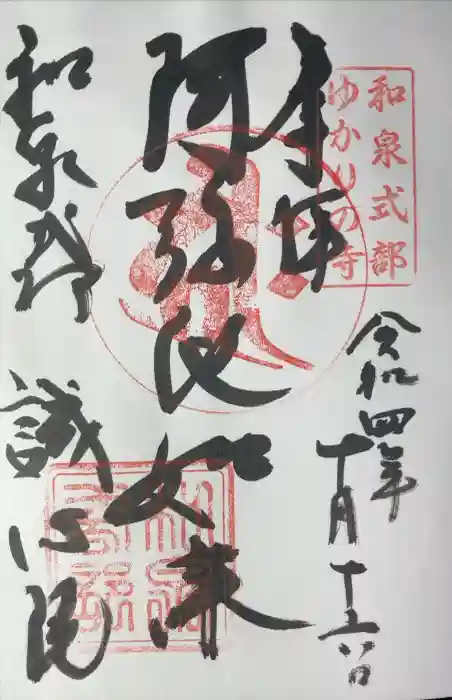 和泉式部
ゆかりの寺
奉拝
令和四年
十月十六日
阿弥陀如来
和泉式部
誠心院